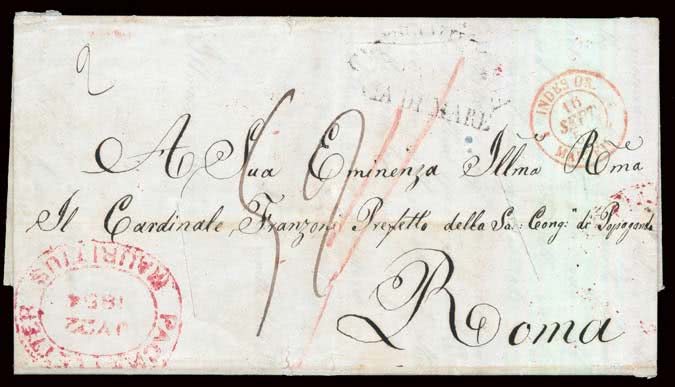 2
VIA DI MARE
INDES OR.
16
SEPT
A Sua Eminenza Illma Rma
Il Cardinale Franzoni Prefetto della Sa: Cong: di Propaganda
Roma
PACKET LETTER
MAURITIUS
JY 22
1854